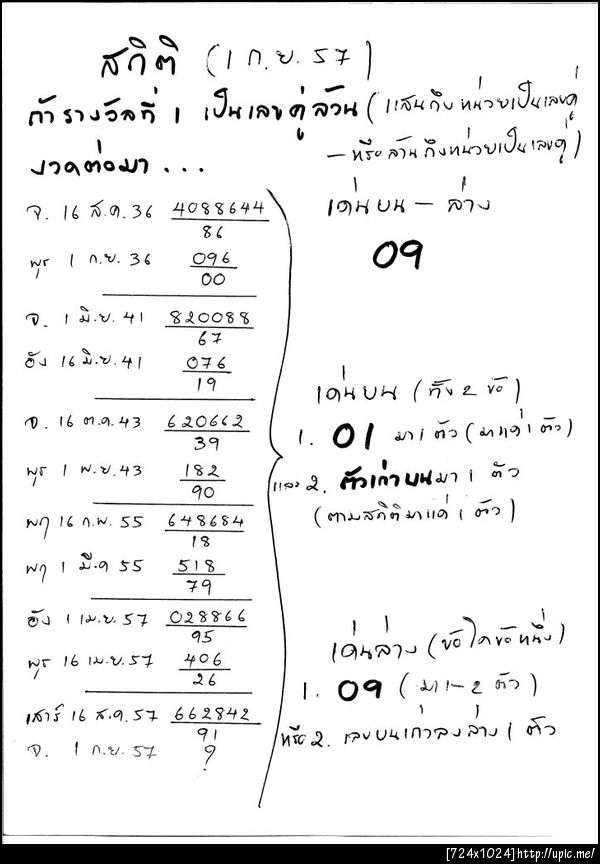 สถิติ (1 ก.ย. 57)
ถ้ารางวัลที่ 1 เป็นเลขคู่ล้วน (แสนถึงหน่วยเป็นเลขคู่
- หรือล้านถึงหน่วยเป็นเลขคู่)
งวดต่อมา ...
จ. 16 ส.ค. 36 4088644
86
พุธ 1 ก.ย. 36 096
00
จ. 1 มิ.ย. 41 820088
67
อัง 16 มิ.ย. 41 076
19
จ. 16 ต.ค. 43 620662
39
พุธ 1 พ.ย. 43 182
90
พฤ 16 ก.พ. 55 648684
18
พฤ 1 มี.ค 55 518
79
อัง 1 เม.ย. 57 028866
95
พุธ 16 เม.ย. 57 406
26
เสาร์ 16 ส.ค. 57 662842
91
จ. 1 ก.ย. 57 ?
เด่นบน - ล่าง
09
เด่นบน (ทั้ง 2 ข้อ)
1. 01 มา 1 ตัว (มาแค่ 1 ตัว)
และ 2. ตัวเก่าบนมา 1 ตัว
(ตามสถิติมาแค่ 1 ตัว)
เด่นล่าง (ข้อใดข้อหนึ่ง)
1. 09 (มา 1-2 ตัว)
หรือ 2. เลขบนเก่าลงล่าง 1 ตัว
[724x1024]http://upic.me/